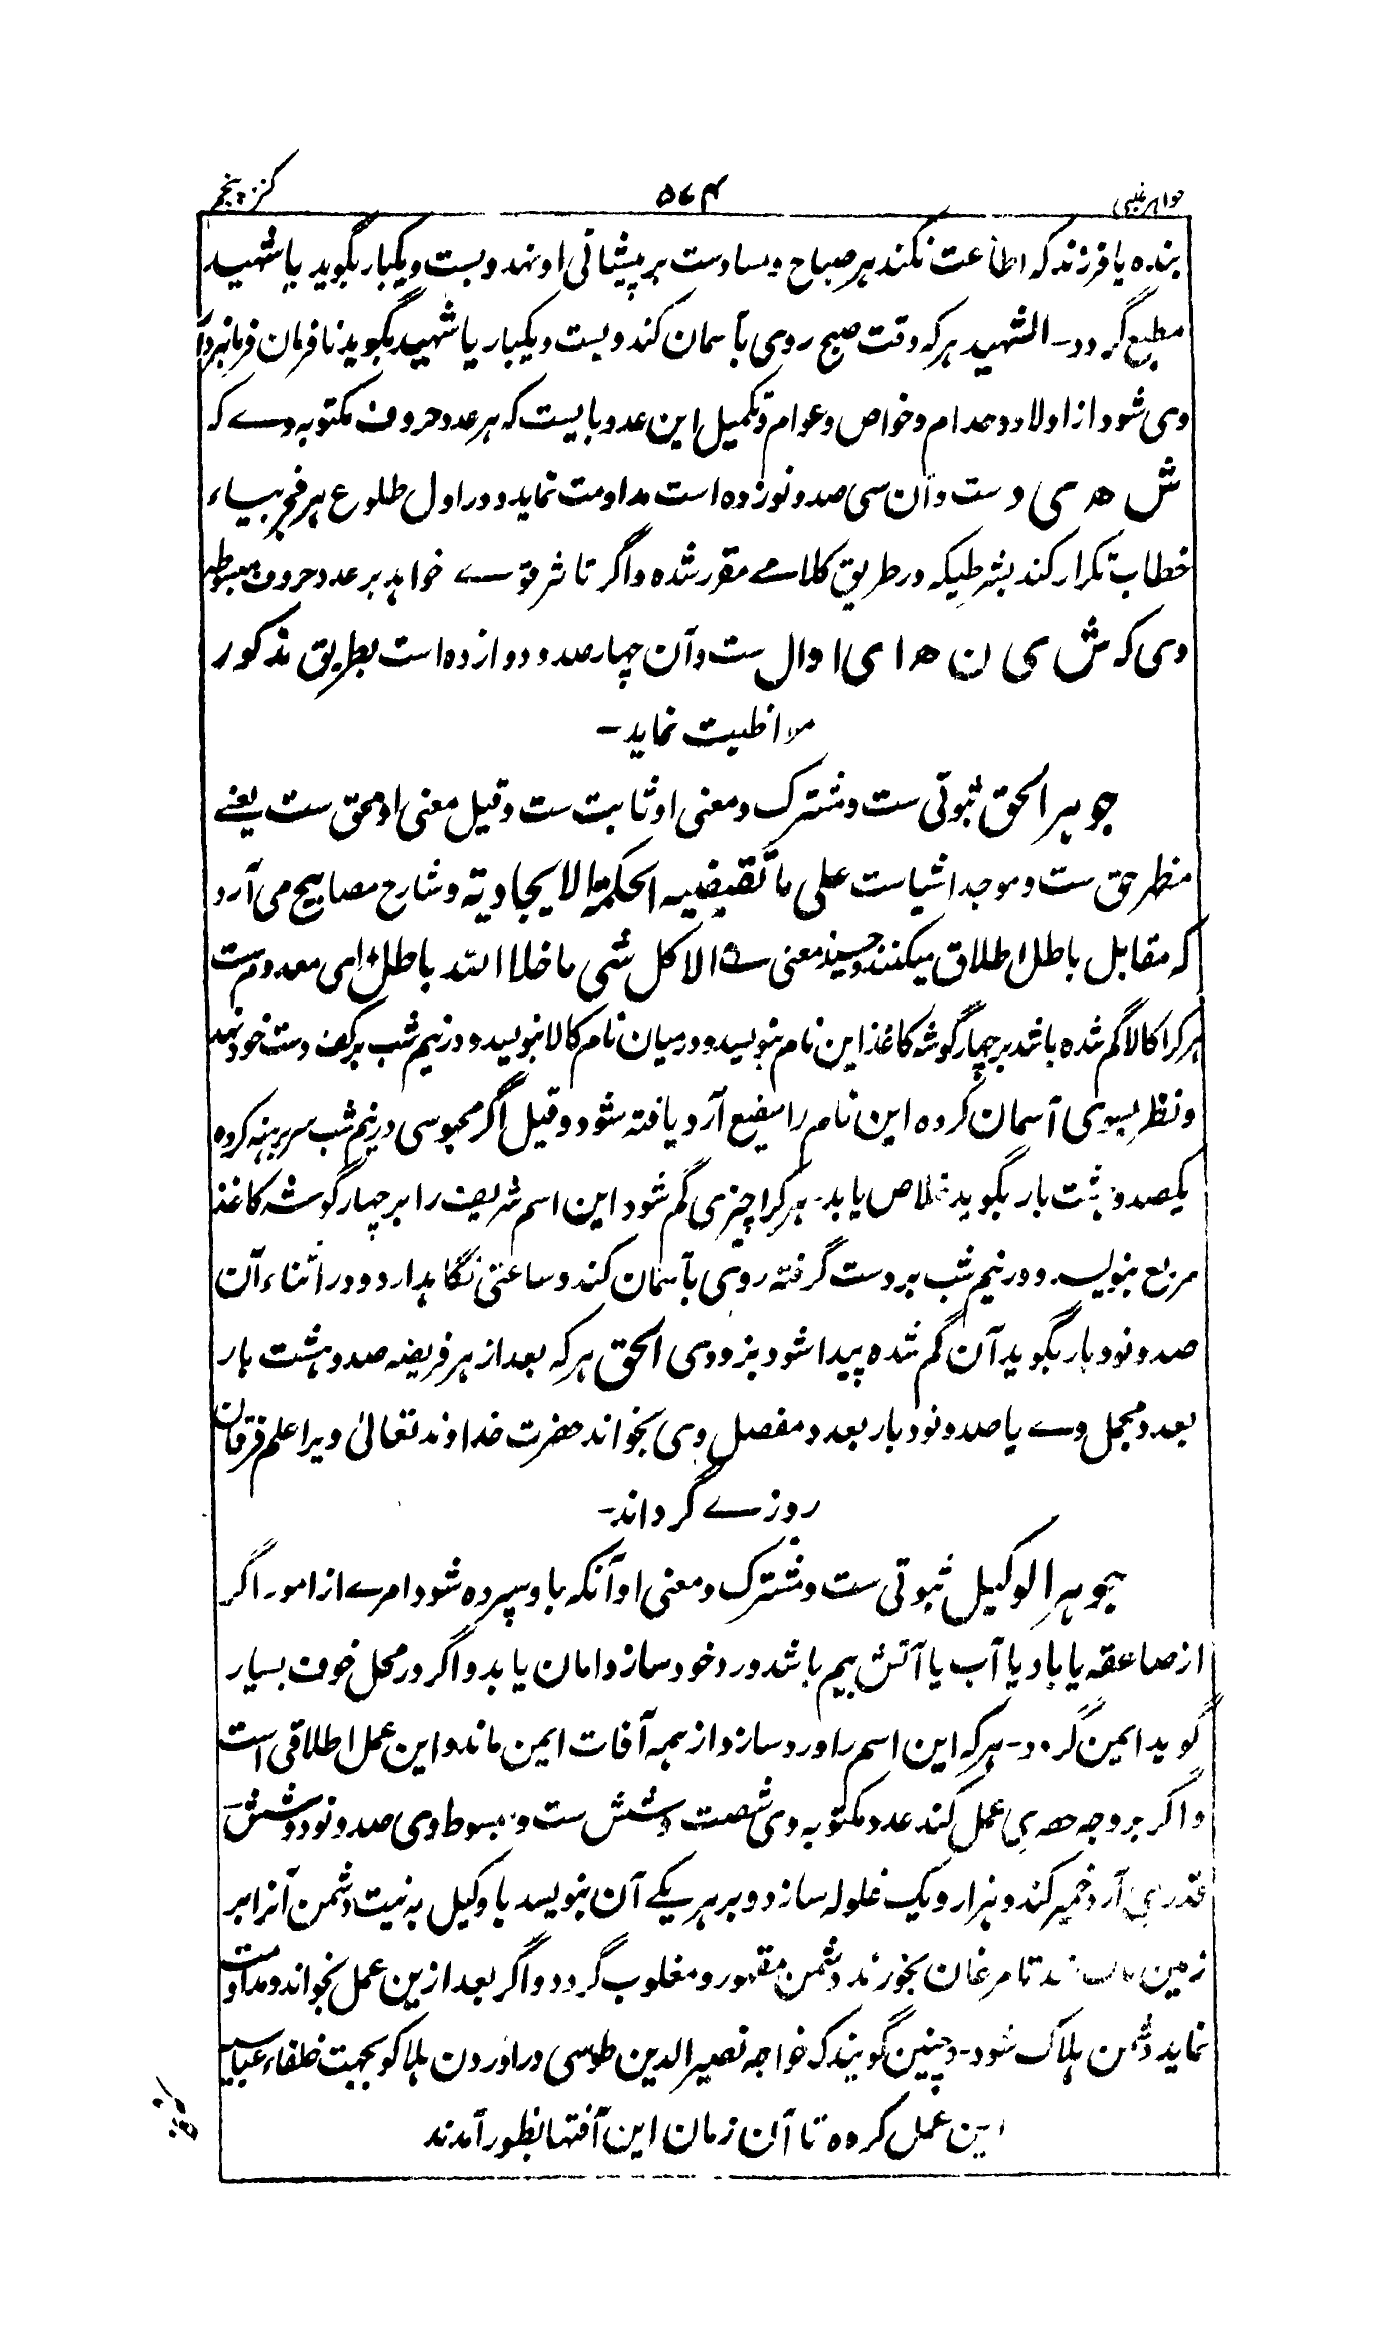 جواهر غیبی ۵۷۴ کنز پنجم
بنده یا فرزند که اطاعت نکند هر صباح و مسا دست بر پیشانی او نهد و بست و یکبار بگوید یا شهید
مطیع گردد۔ الشهید هر که وقت صبح روی بآسمان کند و بست و یکبار یا شهید بگوید نافرمان فرمانبردار
وی شود از اولاد و خدام و خواص و عوام و تکمیل این عدد بایست که هر عدد حروف مکتوبه وے که
ش ه ی د ست و آن سی صد و نوزده است مداومت نماید و در اول طلوع هر فجر بیاء
خطاب تکرار کند بشرطیکه در طریق کلامے مقرر شده و اگر تاثیر قوے خواهد بر عدد حروف مبسوطه
وی که ش ی ن ه ا ی ا د ا ل ست و آن چهار صد و دوازده است بطریق مذکور
مواظبت نماید۔
جوهر الحق ثبوتی ست و مشترک و معنی او ثابت ست و قیل معنی او محق ست یعنے
مظهر حق ست و موجد اشیاست علی ما تقتضیه الحکمة الایجادیة و شارح مصابیح می آرد
که مقابل باطل اطلاق میکنند و حسینذ معنی ع الا کل شی ما خلا الله باطل ای معدوم ست
هر کرا کالا گم شده باشد بر چهار گوشه کاغذ این نام بنویسد و در میان نام کالا بنویسد و در نیم شب بر کف دست خود نهد
و نظر بسوی آسمان کرده این نام را شفیع آرد یافته شود و قیل اگر محبوسی در نیم شب سر برهنه کرده
یکصد و هشت بار بگوید خلاص یابد۔ هر کرا چیزی گم شود این اسم شریف را بر چهار گوشه کاغذ
مربع بنویسد و در نیم شب بر دست گرفته روی بآسمان کند و ساعتی نگاهدارد و در اثناء آن
صد و نود بار بگوید آن گم شده پیدا شود بزودی الحق هر که بعد از هر فریضه صد و هشت بار
بعدد مجمل وے یا صد و نود بار بعدد مفصل وی بخواند حضرت خداوند تعالیٰ ویرا علم فرقان
روزے گرداند۔
جوهر الوکیل ثبوتی ست و مشترک و معنی او آنکه باو سپرده شود امرے از امور اگر
از صاعقه یا باد یا آب یا آتش بیم باشد ورد خود سازد امان یابد و اگر در محل خوف بسیار
گوید ایمن گردد۔ هر که این اسم را ورد سازد از همه آفات ایمن ماند و این عمل اطلاقی است
و اگر بر وجه حصری عمل کند عدد مکتوبه وی شصت و شش ست و مبسوط وی صد و نود و شش
قدری آرد خمیر کند و هزار و یک غلوله سازد و بر هر یکے آن بنویسد یا وکیل به نیت دشمن آنرا بر
زمین تا مرغان بخورند دشمن مقهور و مغلوب گردد و اگر بعد ازین عمل بخواند و مداومت
نماید دشمن هلاک شود۔ و چنین گویند که خواجه نصیر الدین طوسی در آوردن هلاکو بجهت خلفاء عباسیه
این عمل کرده تا آن زمان این آفتها بظهور آمدند